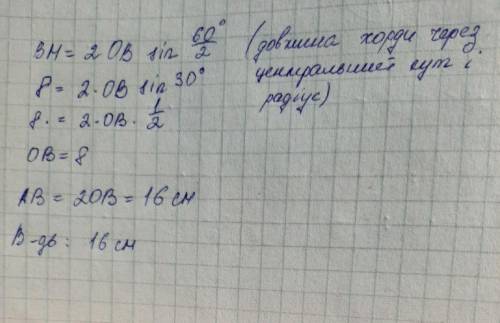 BH = 2 OB sin 60°/2 (довжина хорди через
центральний кут і
радіус)
8 = 2·OB sin 30°
8 = 2·OB·1/2
OB = 8
AB = 2OB = 16 см
В-дь: 16 см